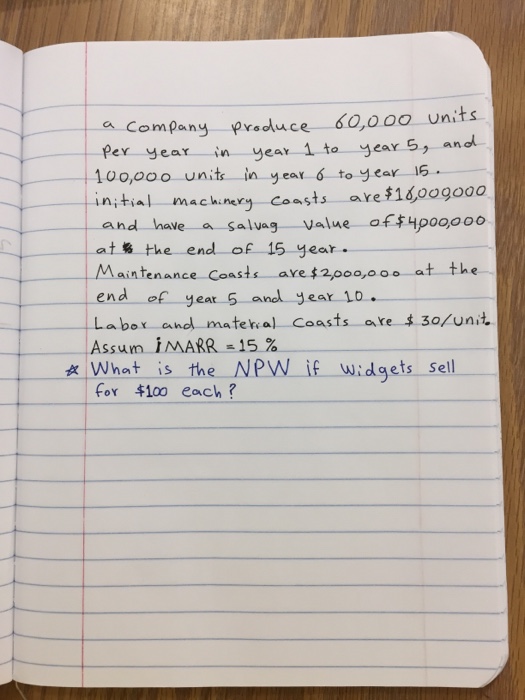 a company produce 60,000 units
Per year in year 1 to year 5, and
100,000 units in year 6 to year 15.
initial machinery coasts are $16,000,000
and have a salvag value of $4,000,000
at the end of 15 year.
Maintenance coasts are $2,000,000 at the
end of year 5 and year 10.
Labor and material coasts are $30/unit.
Assum iMARR = 15%
☆ What is the NPW if widgets sell
for $100 each?